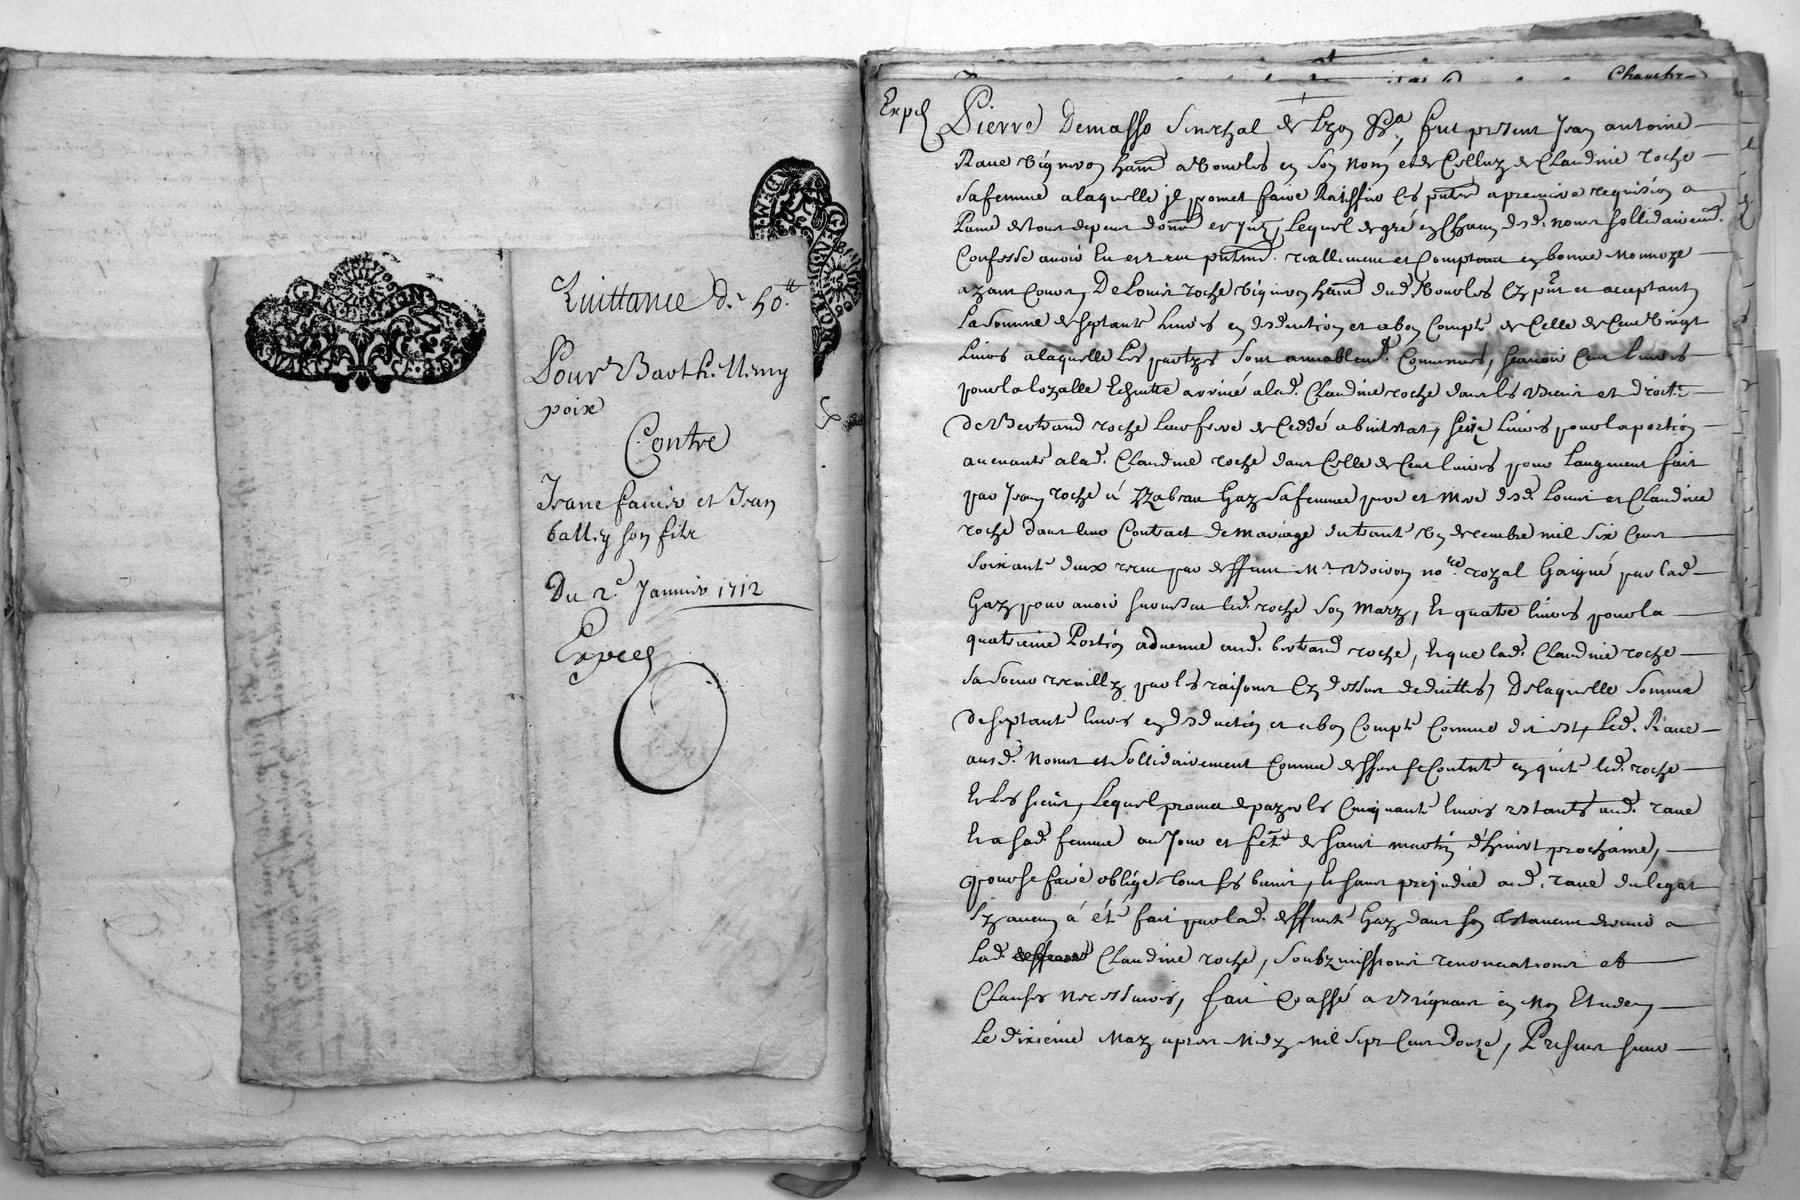 Quittance de 50.tt
Pour Barthellemy
poix
Contre
Jeane faurie et Jean
batt.y son fils
Du 2.e Janvier 1712
Exped
Chambre
Exped
Pierre Demasso Senechal de Lyon &.a fut present Jean antoine
Rave vigneron hant. a Bouoles en son nom et de Celluy de Claudine roche
Safemme a laquelle il promet faire Rattiffier Ces pntes a premiere requision a
Payne de tous depens domd. et Jnt., Lequel de gré es Chacun desd. noms sollidairemt.
Confesse avoir Eu et receu pntemt. reallement et Comptant en bonne monnoye
ayant Cours, De Louis roche vigneron hant. dud. Cy pnt. et acceptant
La somme de septante Livres en deduction et a bon Compte de Celle de Cent Vingt
Livres a laquelle Les partyes Sont amiablemt. Convenues, scavoir Cent Livres
pour la loyalle Echutte arrivé a lad. Claudine roche dans les biens et droits
de Bertrand roche Leur frere de Ceddé abintstat, seize Livres pour la portion
avenante a lad. Claudine roche dans Celle de Cent Livres pour Laugment fait
par Jean roche à Yzabeau Gay Safemme pere et Mere desd. Louis et Claudine
roche dans leur Contract de Mariage du trante un decembre mil Six Cent
Soixante deux receu par deffunt Mr. Boiron no.re royal Gaigné par lad.
Gay pour avoir survescu led. roche Son Mary, Et quatre livres pour la
quatrieme Portion advenue aud. bertrand roche, Et que lad. Claudine roche
Sa Soeur recuilly par les raisons Cy dessus deduittes, De laquelle Somme
de septante livres en deduction et a bon Compte Comme dit est, Led. Rave
ausd. Noms et Sollidairement Comme dessus se Contente en quitte led. roche
Et les siens, Lequel promet de payer les Cinquante livres restants aud. rave
Et a sad. femme au Jour et feste de saint martin d'hivert prochaine,
pour se faire oblige tout ses biens, Et sans prejudice aud. rave du legat
Sy aucun à été fait par lad. deffunte Gay dans son testament dernier a
lad. Claudine roche, Soubzmissions renonciations et
Clauses necessaires, fait & passé a Brignais en Mon Etude,
Le dixiéme May apres Midy Mil Sept Cent Douze, Presens sieur